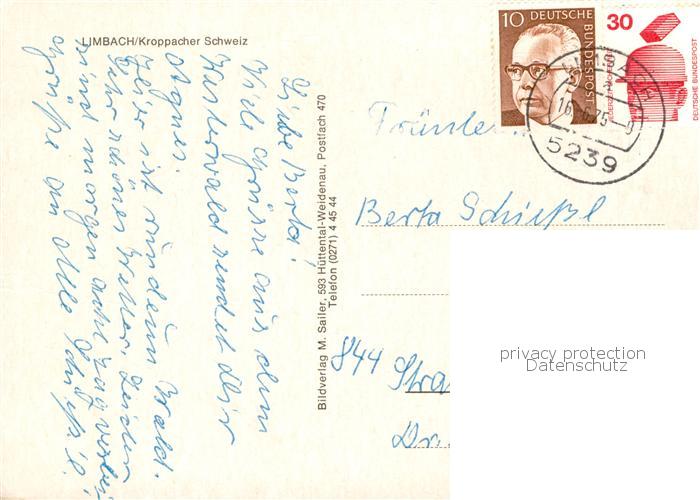 LIMBACH/Kroppacher Schweiz
Liebe Berta!
Viele Grüsse aus dem
Westerwald sendet Dir
Agnes.
Hier ist rundum Wald.
Sehr schönes Wetter. Leider
ist morgen
Grüße an Alle
Bildverlag M. Sailer, 593 Hüttental-Weidenau, Postfach 470
Telefon (0271) 4 45 44
10 DEUTSCHE BUNDESPOST
30
JEDERZEIT SICHERHEIT
DEUTSCHE BUNDESPOST
5239
Berta Schießl
844 Stra
Dr.
privacy protection
Datenschutz